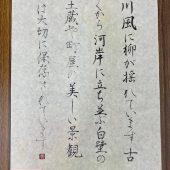 川風に柳が揺れています古
くから河岸に立ち並ぶ白壁の
土蔵や町屋の美しい景観
は大切に保存されています